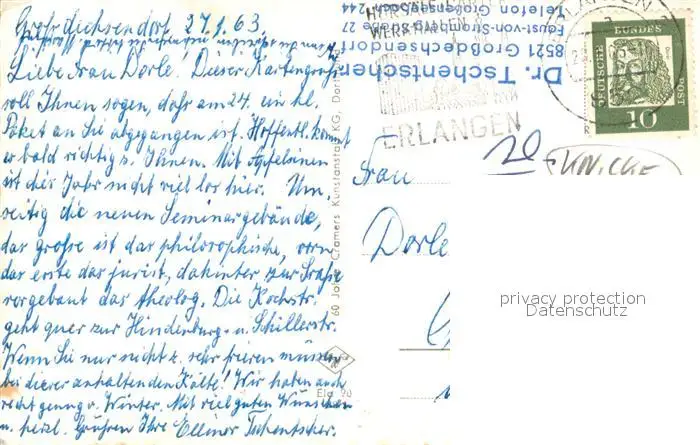 Großdechsendorf, 27.1.63.
Liebe Frau Dorle. Dieser Kartengruß
soll Ihnen sagen, daß am 24. ein kl.
Paket an Sie abgegangen ist. Hoffentl. kommt
er bald richtig z. Ihnen. Mit Apfelsinen
ist dies Jahr nicht viel los hier. Um-
seitig die neuen Seminargebäude,
das große ist das philosophische, vorn
das erste das jurist., dahinter zur Straße
vorgebaut das theolog. Die Kochstr.
geht quer zur Hindenburg- u. Schillerstr.
Wenn Sie nur nicht z. sehr frieren müssen
bei dieser anhaltenden Kälte! Wir haben auch
recht genug v. Winter. Mit viel guten Wünschen
u. herzl. Grüßen Ihre Ellinor Tschentscher.
60 Jahre Cramers Kunstanstalt KG, Dortmund
Dr. Tschentscher
8521 Großdechsendorf
Faust-von-Stromberg-Siedle 27
Telefon Großdechsendorf 244
ERLANGEN
ERLANGEN
DEUTSCHE BUNDESPOST
10
20
Frau
Dorle
privacy protection
Datenschutz